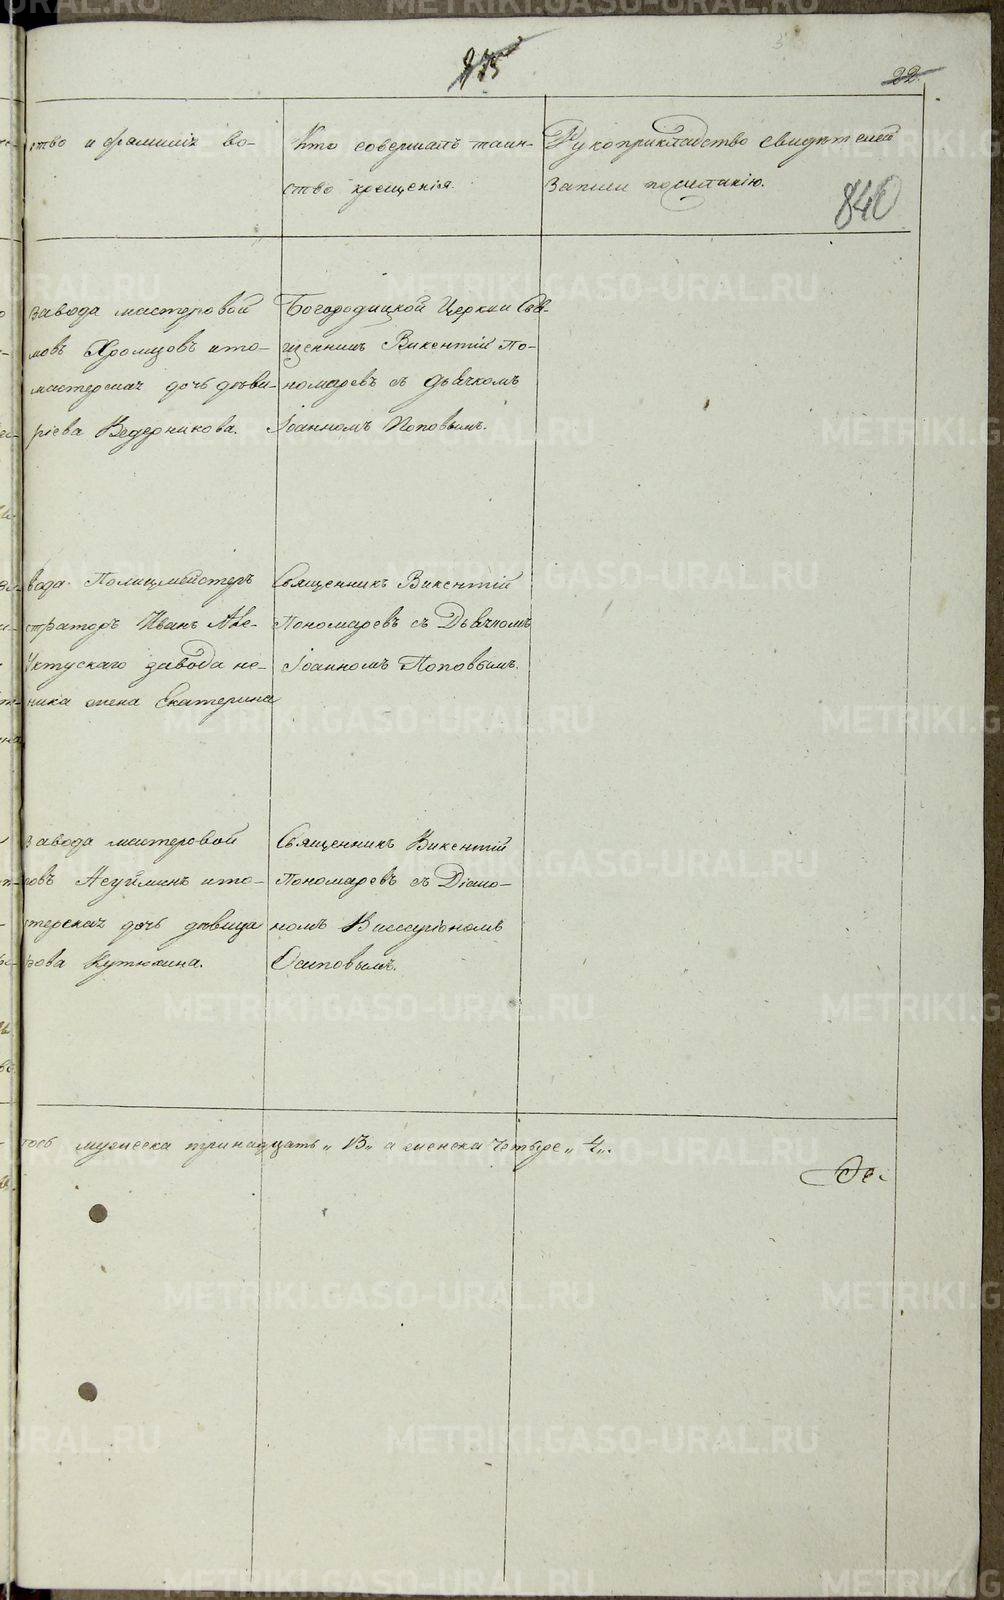 275
22
ство и фамилія во-
Кто совершалъ таин-
ство крещенія.
Рукоприкладство свидѣтелей
записи по желанію.
840
завода мастеровой
мовъ Хромцовъ и то-
мастерская дочь дѣви-
ріева Ведерникова.
Богородицкой Церкви Свя-
щенникъ Викентій По-
номаревъ съ дьячкомъ
Іоанномъ Поповымъ.
вода Полицмейстеръ
страторъ Иванъ Але-
Уктускаго завода не-
ника жена Екатерина
Священникъ Викентій
Пономаревъ съ Дьячкомъ
Іоанномъ Поповымъ.
завода мастеровой
ровъ и то-
терская дочь дѣвица
рова Кутюхина.
Священникъ Викентій
Пономаревъ съ Діако-
номъ Виссаріономъ
Осиповымъ.
мужеска тринадцать „13„ а женска четыре „4„.
METRIKI.GASO-URAL.RU